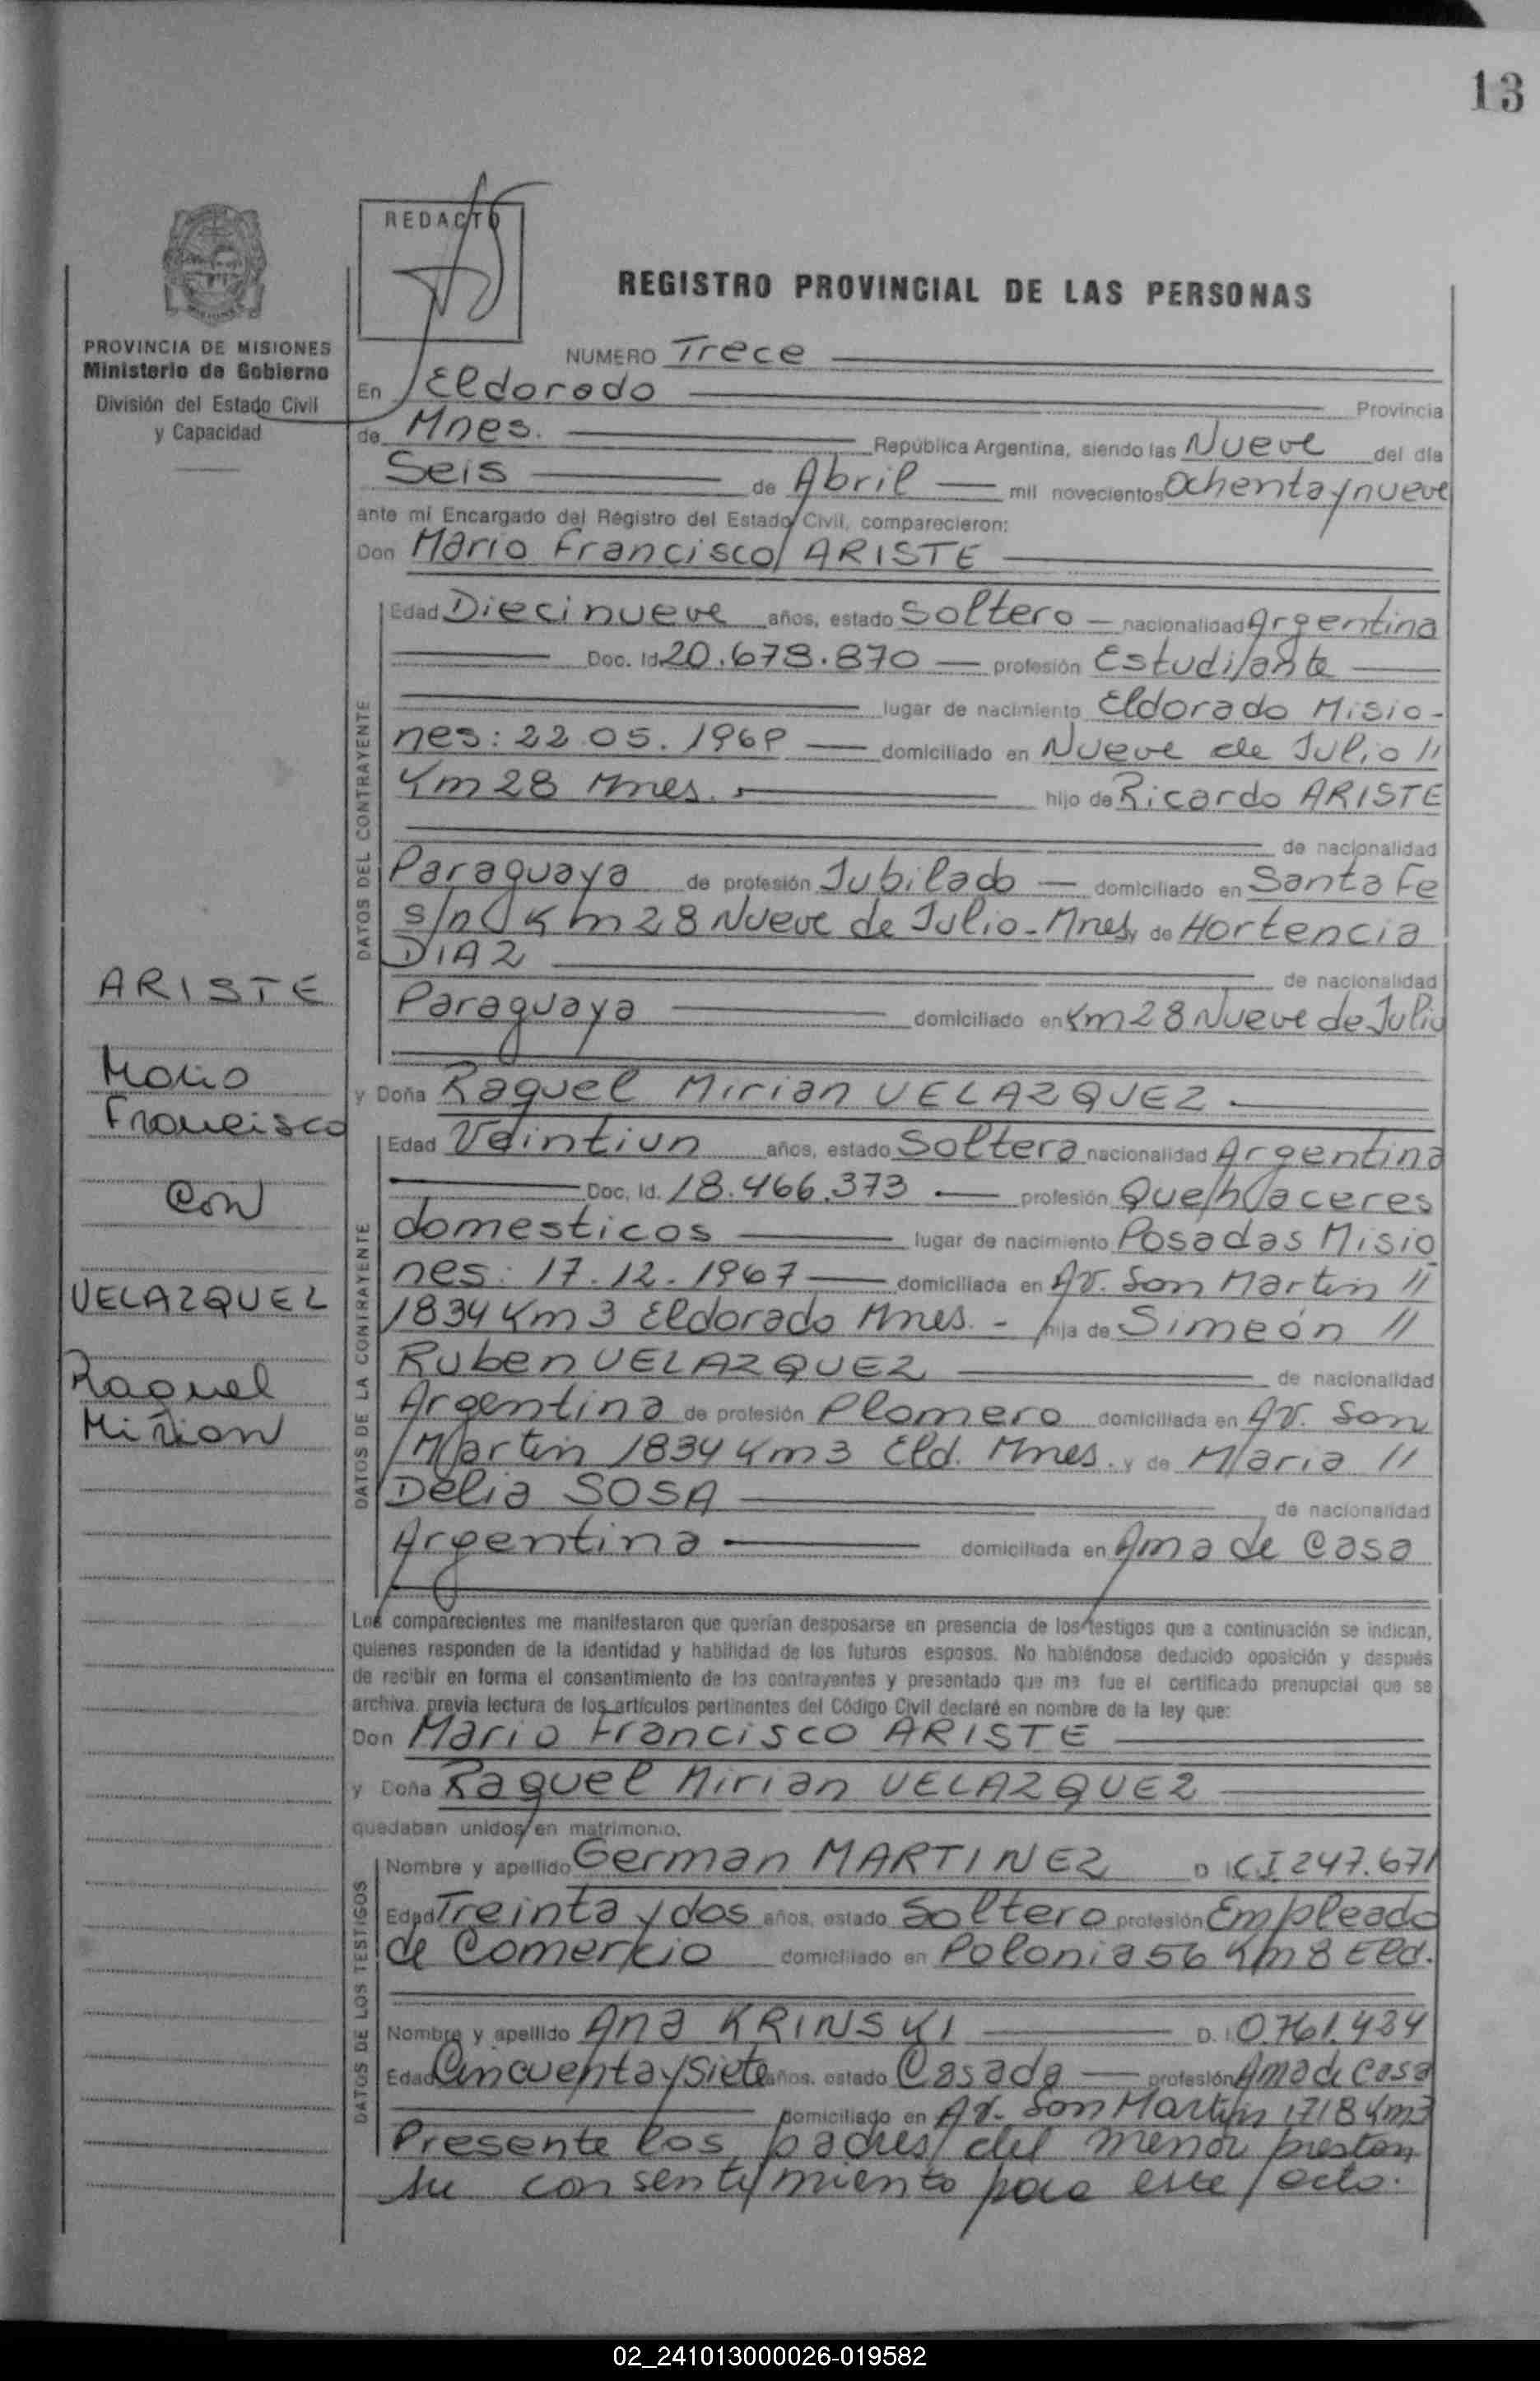 13
REDACTO
REGISTRO PROVINCIAL DE LAS PERSONAS
PROVINCIA DE MISIONES
Ministerio de Gobierno
División del Estado Civil
y Capacidad
NUMERO Trece
En Eldorado Provincia
de Mnes. República Argentina, siendo las Nueve del día
Seis de Abril mil novecientos Ochenta y nueve
ante mí Encargado del Registro del Estado Civil, comparecieron:
Don Mario Francisco ARISTE
DATOS DEL CONTRAYENTE
Edad Diecinueve años, estado Soltero nacionalidad Argentina
Doc. Id. 20.678.870 profesión Estudiante
lugar de nacimiento Eldorado Misio-
nes: 22.05.1969 domiciliado en Nueve de Julio //
Km 28 Mnes. hijo de Ricardo ARISTE
de nacionalidad
Paraguaya de profesión Jubilado domiciliado en Santa Fe
s/n Km 28 Nueve de Julio-Mnes y de Hortencia
DIAZ de nacionalidad
Paraguaya domiciliado en Km 28 Nueve de Julio
ARISTE
Mario
Francisco
CON
VELAZQUEZ
Raquel
Mirian
y Doña Raquel Mirian VELAZQUEZ
DATOS DE LA CONTRAYENTE
Edad Veintiun años, estado Soltera nacionalidad Argentina
Doc. Id. 18.466.373 profesión Quehaceres
domesticos lugar de nacimiento Posadas Misio
nes: 17.12.1967 domiciliada en Av. San Martin //
1834 Km 3 Eldorado Mnes. - hija de Simeón //
Ruben VELAZQUEZ de nacionalidad
Argentina de profesión Plomero domiciliada en Av. San
Martin 1834 Km 3 Eld. Mnes. y de Maria //
Delia SOSA de nacionalidad
Argentina domiciliada en Ama de Casa
Los comparecientes me manifestaron que querían desposarse en presencia de los testigos que a continuación se indican,
quienes responden de la identidad y habilidad de los futuros esposos. No habiéndose deducido oposición y después
de recibir en forma el consentimiento de los contrayentes y presentado que me fue el certificado prenupcial que se
archiva. previa lectura de los artículos pertinentes del Código Civil declaré en nombre de la ley que:
Don Mario Francisco ARISTE
y Doña Raquel Mirian VELAZQUEZ
quedaban unidos en matrimonio.
DATOS DE LOS TESTIGOS
Nombre y apellido German MARTINEZ D. I C.I 247.671
Edad Treinta y dos años, estado Soltero profesión Empleado
de Comercio domiciliado en Polonia 56 Km 8 Eld.
Nombre y apellido Ana KRINSKI D. I 0.761.484
Edad Cincuenta y Siete años, estado Casada profesión Ama de Casa
domiciliado en Av. San Martin 1718 Km 3
Presente los padres del menor prestan
su consentimiento para este acto.
02_241013000026-019582